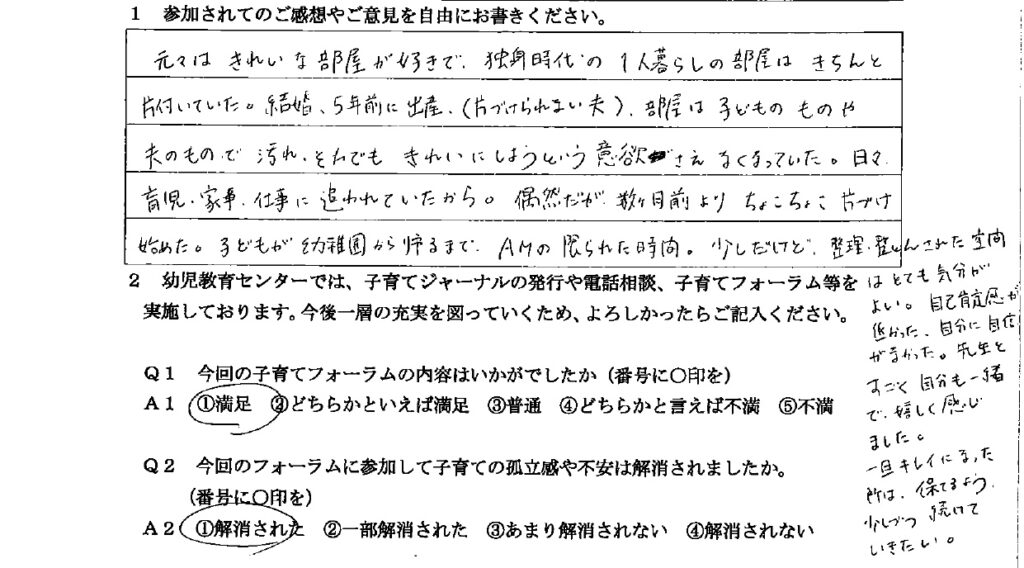 1 参加されてのご感想やご意見を自由にお書きください。
元々は きれいな部屋が好きで、独身時代の1人暮らしの部屋は きちんと
片付いていた。結婚、5年前に出産、(片づけられない夫)、部屋は子どものものや
夫のもので 汚れ、それでも きれいにしようという意欲さえ なくなっていた。日々
育児・家事・仕事に追われていたから。偶然だが、数ヶ月前より ちょこちょこ片づけ
始めた。子どもが幼稚園から帰るまで、AMの限られた時間。少しだけど、整理・整とんされた空間
はとても気分が
よい。自己肯定感が
低かった、自分に自信
がなかった。先生と
すごく自分も一緒
で、嬉しく感じ
ました。
一旦キレイになった
所は、保てるよう、
少しづつ続けて
いきたい。
2 幼児教育センターでは、子育てジャーナルの発行や電話相談、子育てフォーラム等を
実施しております。今後一層の充実を図っていくため、よろしかったらご記入ください。
Q1 今回の子育てフォーラムの内容はいかがでしたか(番号に〇印を)
A1 ①満足 ②どちらかといえば満足 ③普通 ④どちらかと言えば不満 ⑤不満
Q2 今回のフォーラムに参加して子育ての孤立感や不安は解消されましたか。
(番号に〇印を)
A2 ①解消された ②一部解消された ③あまり解消されない ④解消されない